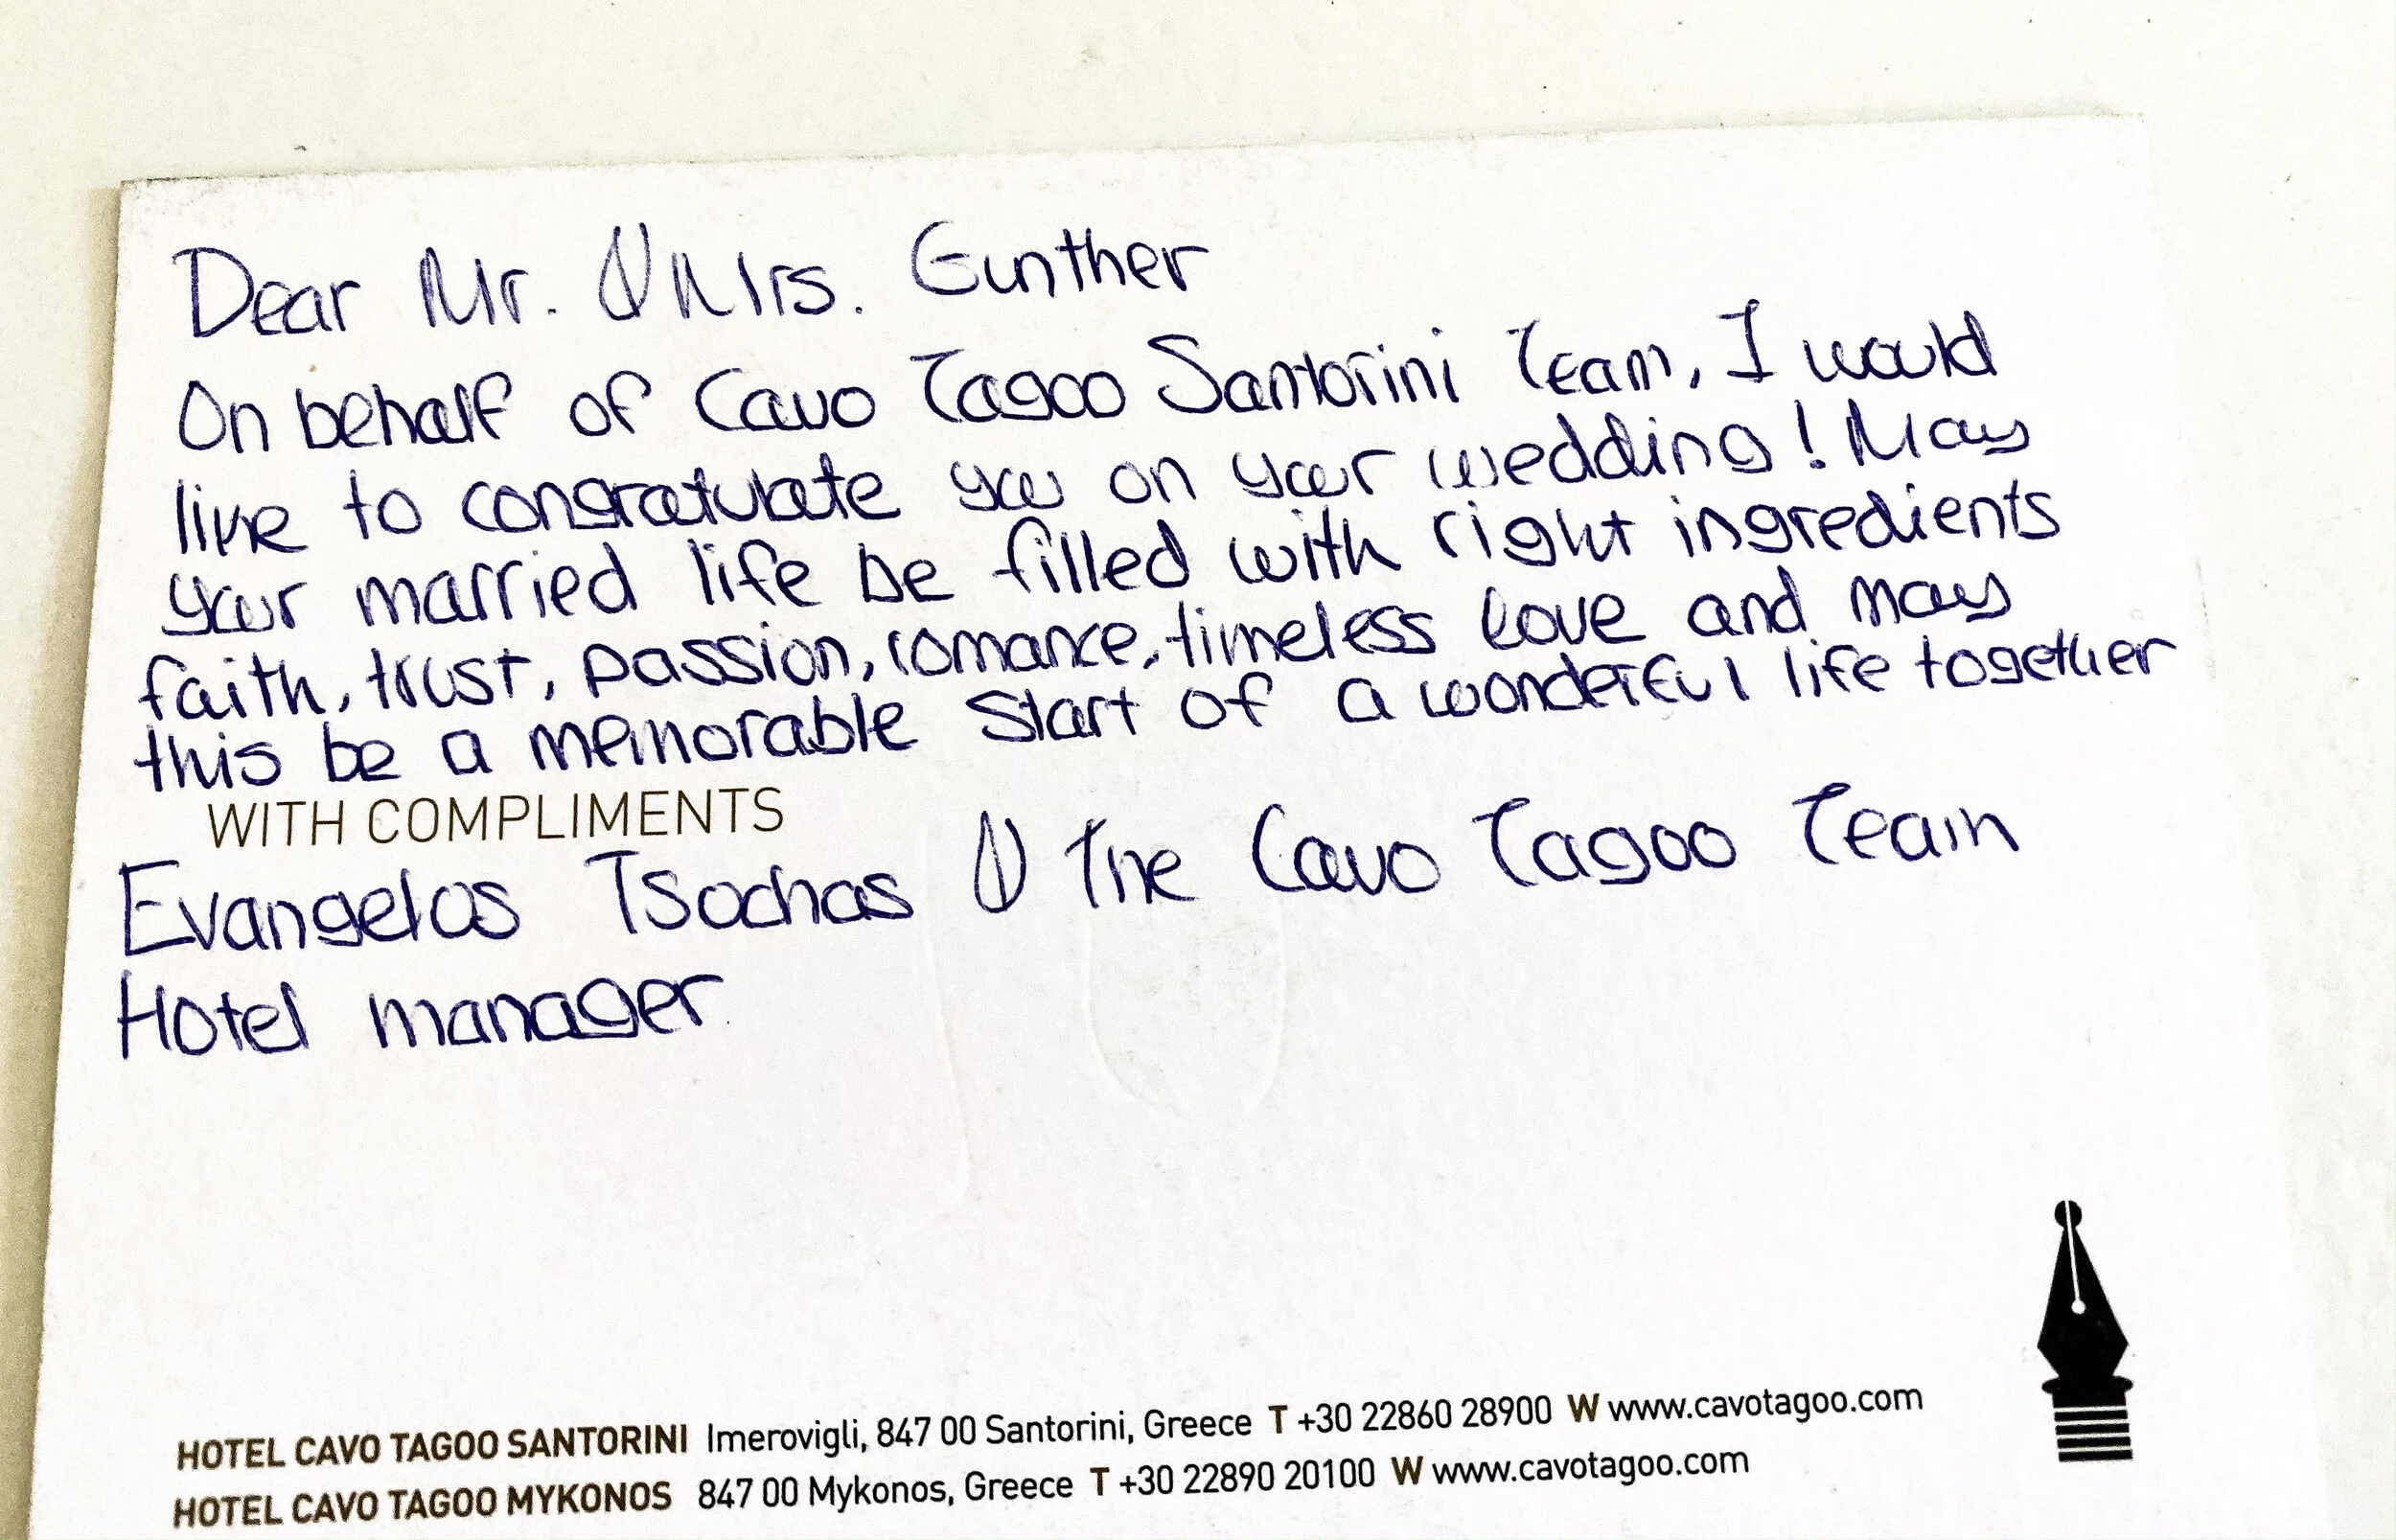 Dear Mr. & Mrs. Gunther
On behalf of Cavo Tagoo Santorini Team, I would
like to congratulate you on your wedding! May
your married life be filled with right ingredients
faith, trust, passion, romance, timeless love and may
this be a memorable start of a wonderful life together
WITH COMPLIMENTS
Evangelos Tsochas & The Cavo Tagoo Team
Hotel manager
HOTEL CAVO TAGOO SANTORINI Imerovigli, 847 00 Santorini, Greece T +30 22860 28900 W www.cavotagoo.com
HOTEL CAVO TAGOO MYKONOS 847 00 Mykonos, Greece T +30 22890 20100 W www.cavotagoo.com